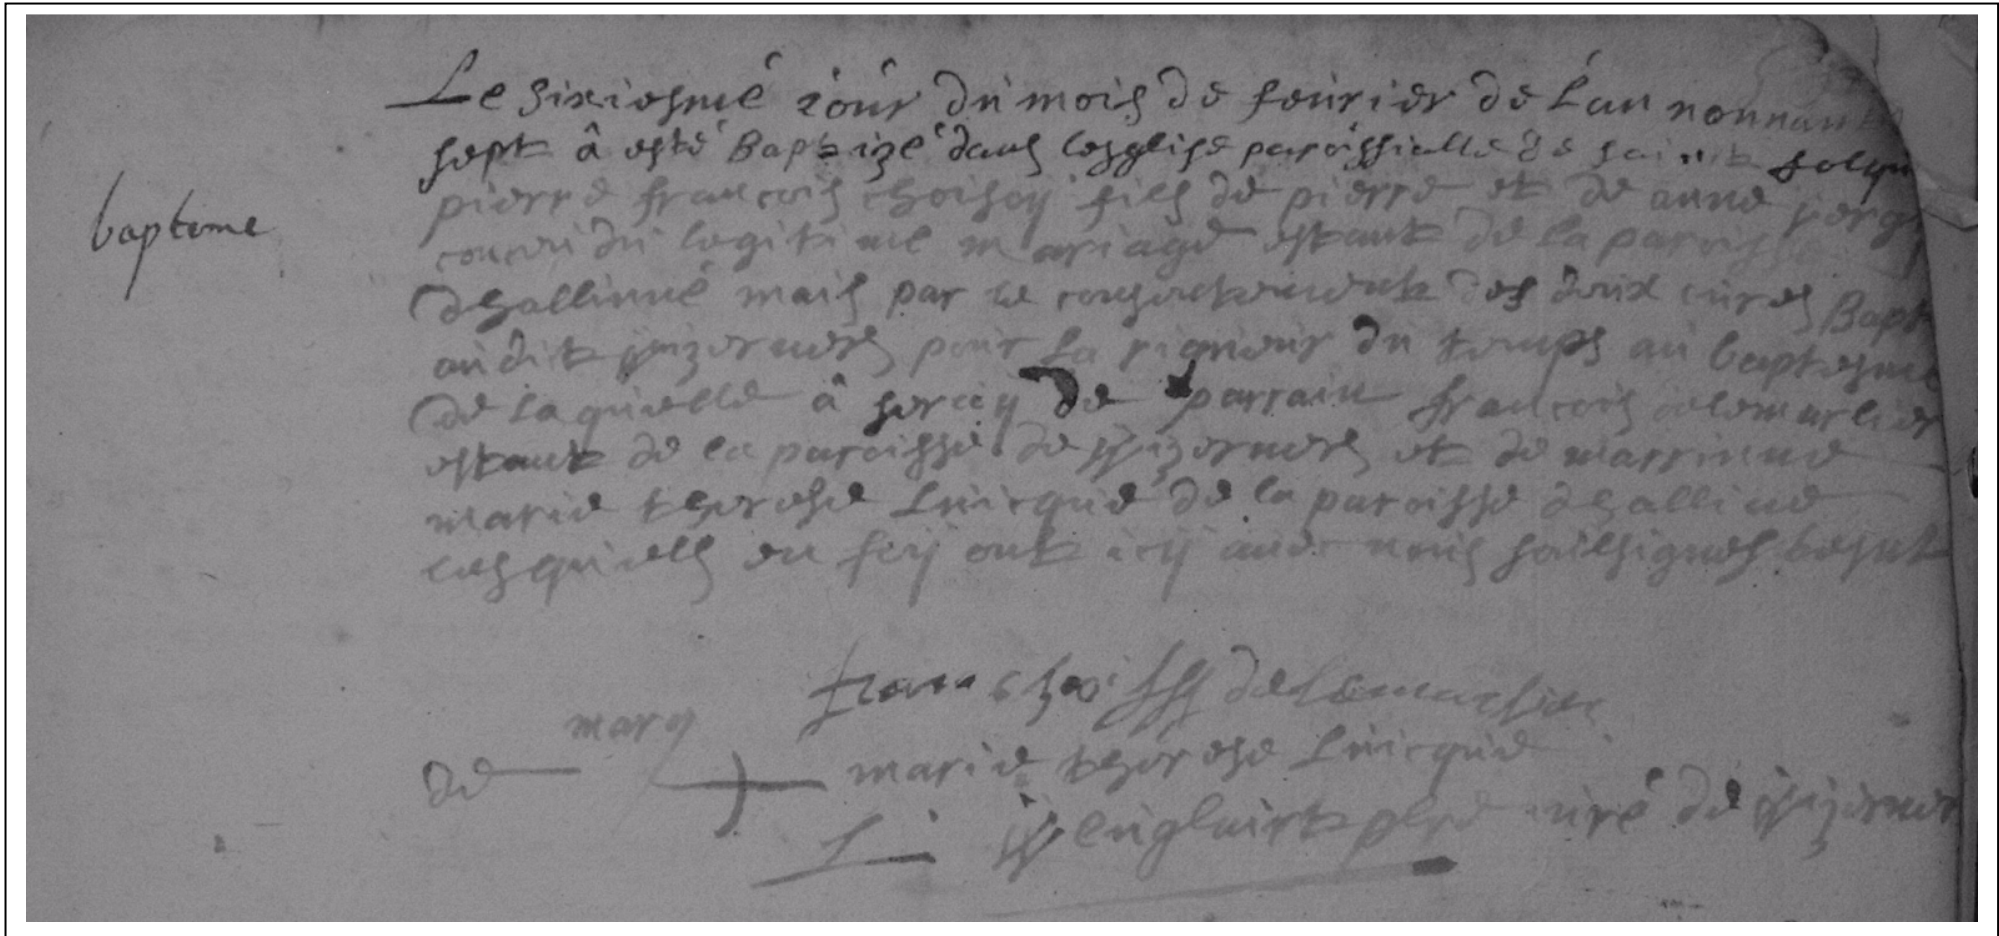 Le sixiesme iour du mois de feurier de l'an nonnante
sept â esté Baptizé dans lesglise paroissialle de saint folqu
bapteme
pierre francois choisoy fils de pierre et de anne
du legitime mariage estant de la paroisse
dhallinne mais par le consentement des deux curez Bapt
audit wizernes pour la rigueur du temps au baptesme
de laquelle â seruy de parrain francois delemarlier
estant de la paroisse de wizernes et de marrinne
marie therese Luicque de la paroisse dhalline
lesquels en foy ont icy auec nous soubsignes
franchois delemarlier
marq
de
marie therese Luicque
curé de wizernes